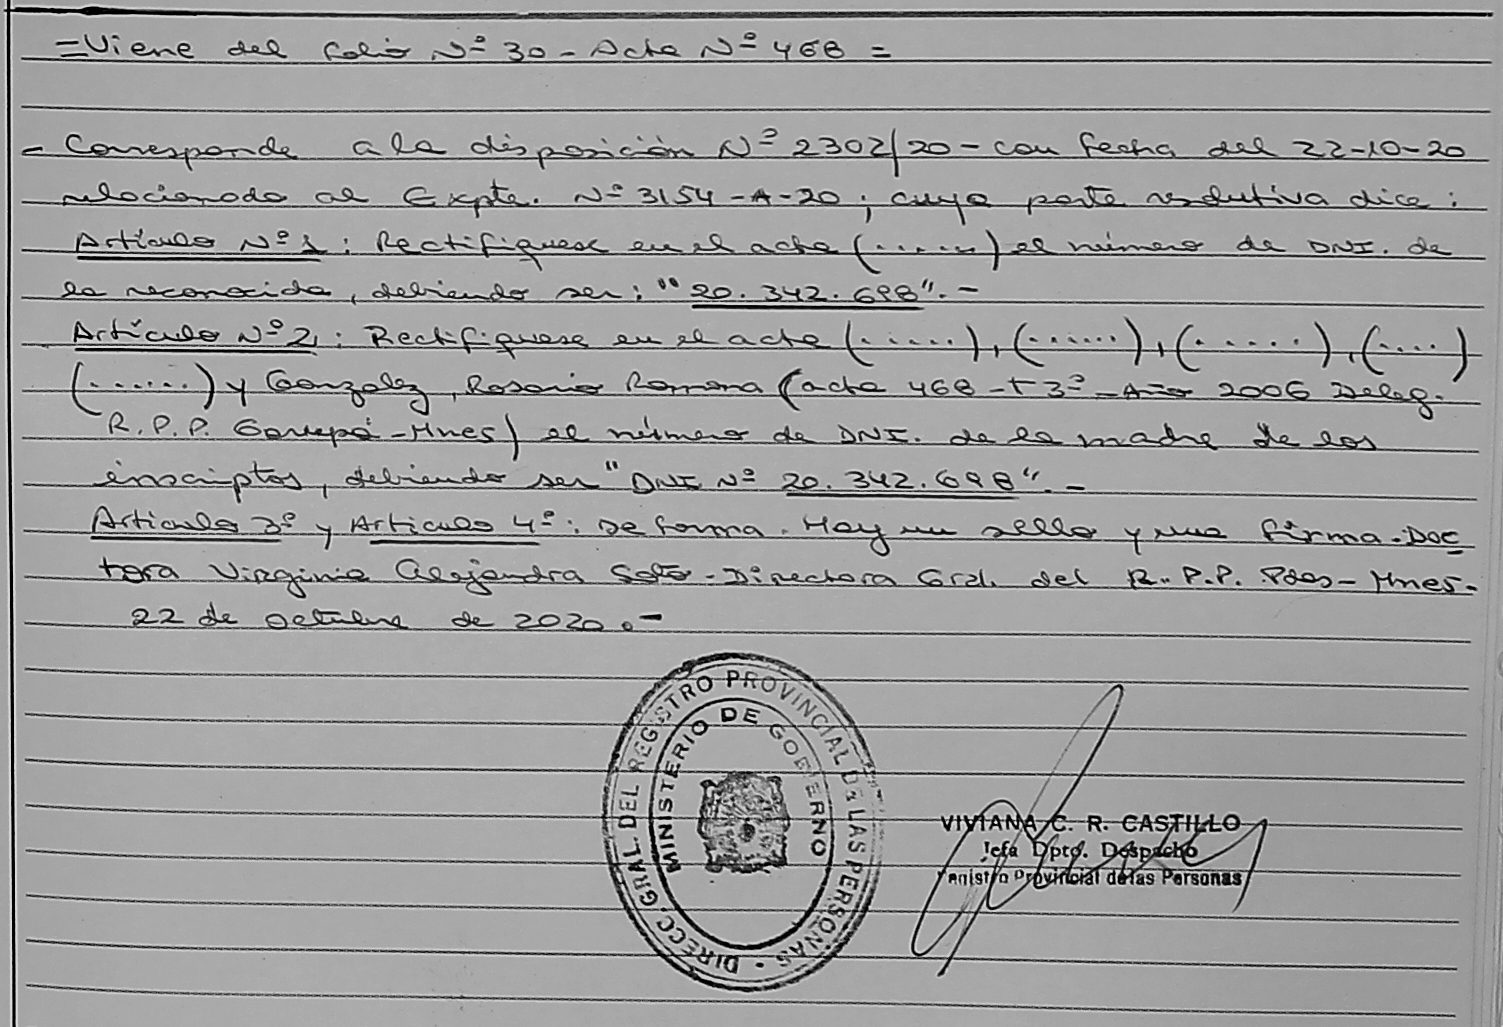 =Viene del Folio Nº 30 - Acta Nº 468 =
- Corresponde a la disposición Nº 2302/20 - con fecha del 22-10-20
relacionado al Expte. Nº 3154 - A - 20; cuya parte resolutiva dice:
Artículo Nº 1: Rectifíquese en el acta (......) el número de DNI. de
la reconocida, debiendo ser: "20.342.698". -
Artículo Nº 2: Rectifíquese en el acta (.....), (......), (.....), (....)
(......) y Gonzalez, Rosario Ramona (acta 468 - T 3º - Año 2006 Deleg.
R.P.P. Garupá - Mnes) el número de DNI. de la madre de los
inscriptos, debiendo ser "DNI Nº 20.342.698". -
Articulo 3º y Articulo 4º: De forma. Hay un sello y una firma. Doc
tora Virginia Alejandra Soto - Directora Gral. del R.P.P. Pdas - Mnes -
22 de octubre de 2020. -
DIRECC. GRAL. DEL REGISTRO PROVINCIAL DE LAS PERSONAS -
MINISTERIO DE GOBIERNO
VIVIANA C. R. CASTILLO
Jefa Dpto. Despacho
Registro Provincial de las Personas